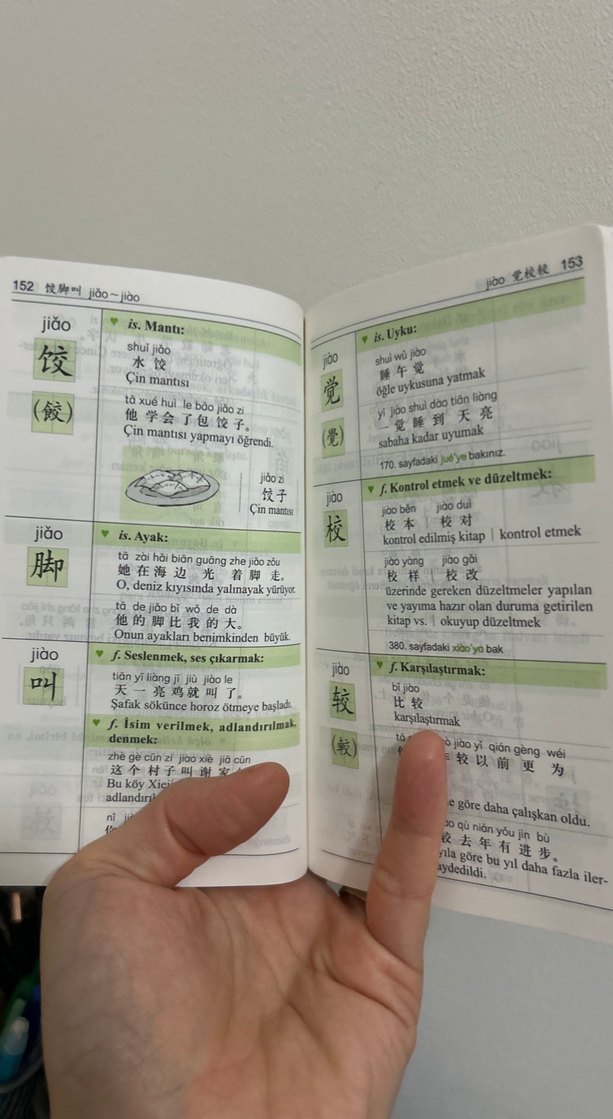 152 饺脚叫 jiǎo～jiào
jiǎo
饺
(餃)
is. Mantı:
shuǐ jiǎo
水 饺
Çin mantısı
tā xué huì le bāo jiǎo zi
他 学 会 了 包 饺 子。
Çin mantısı yapmayı öğrendi.
jiǎo zi
饺子
Çin mantısı
jiǎo
脚
is. Ayak:
tā zài hǎi biān guāng zhe jiǎo zǒu
她 在 海 边 光 着 脚 走。
O, deniz kıyısında yalınayak yürüyor.
tā de jiǎo bǐ wǒ de dà
他 的 脚 比 我 的 大。
Onun ayakları benimkinden büyük.
jiào
叫
f. Seslenmek, ses çıkarmak:
tiān yī liàng jī jiù jiào le
天 一 亮 鸡 就 叫 了。
Şafak sökünce horoz ötmeye başladı.
f. İsim verilmek, adlandırılmak,
denmek:
zhè gè cūn zi jiào xiè jiā cūn
这 个 村 子 叫 谢 家
Bu köy
nǐ
jiào 觉校较 153
jiào
觉
(覺)
is. Uyku:
shuì wǔ jiào
睡 午 觉
öğle uykusuna yatmak
yī jiào shuì dào tiān liàng
一 觉 睡 到 天 亮
sabaha kadar uyumak
170. sayfadaki jué'ye bakınız.
jiào
校
f. Kontrol etmek ve düzeltmek:
jiào běn | jiào duì
校 本 | 校 对
kontrol edilmiş kitap | kontrol etmek
jiào yàng | jiào gǎi
校 样 | 校 改
üzerinde gereken düzeltmeler yapılan
ve yayıma hazır olan duruma getirilen
kitap vs. | okuyup düzeltmek
380. sayfadaki xiào'ya bak
jiào
较
(較)
f. Karşılaştırmak:
bǐ jiào
比 较
karşılaştırmak
jiào yǐ qián gèng wéi
较 以 前 更 为
göre daha çalışkan oldu.
qù nián yǒu jìn bù
较 去 年 有 进 步。
göre bu yıl daha fazla iler-